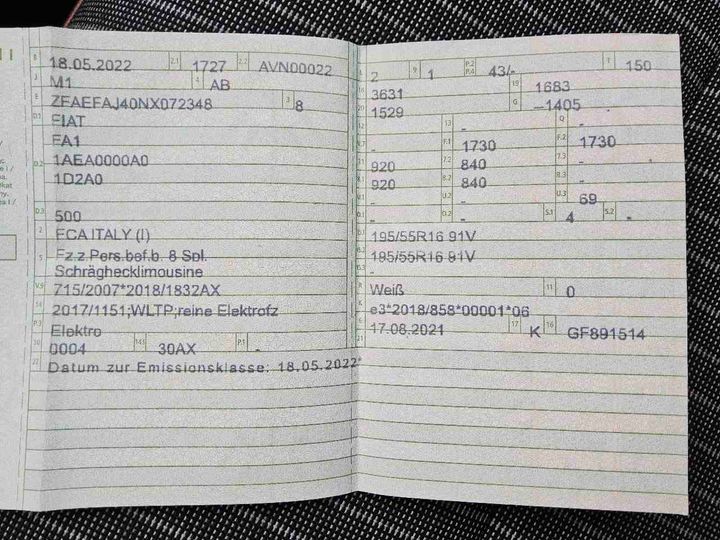 B 18.05.2022 2.1 1727 2.2 AVN00022
J M1 4 AB
E ZFAEFAJ40NX072348 3 8
D.1 FIAT
FA1
D.2 1AEA0000A0
1D2A0
D.3 500
2 FCA ITALY (I)
5 Fz.z.Pers.bef.b. 8 Spl.
Schräghecklimousine
V.9 715/2007*2018/1832AX
14 2017/1151;WLTP;reine Elektrofz
P.3 Elektro
10 0004 14.1 30AX P.1 -
22 Datum zur Emissionsklasse: 18.05.2022*
2 9 1 P.2 P.4 43/- T 150
18 3631 19 1683
1529 G –1405
- 13 - Q -
- F.1 1730 F.2 1730
920 7.2 840 7.3 -
920 840 -
- U.2 - U.3 69
- O.2 - S.1 4 S.2 -
195/55R16 91V
195/55R16 91V
-
R Weiß 11 0
K e3*2018/858*00001*06
6 17.08.2021 17 K 16 GF891514
21